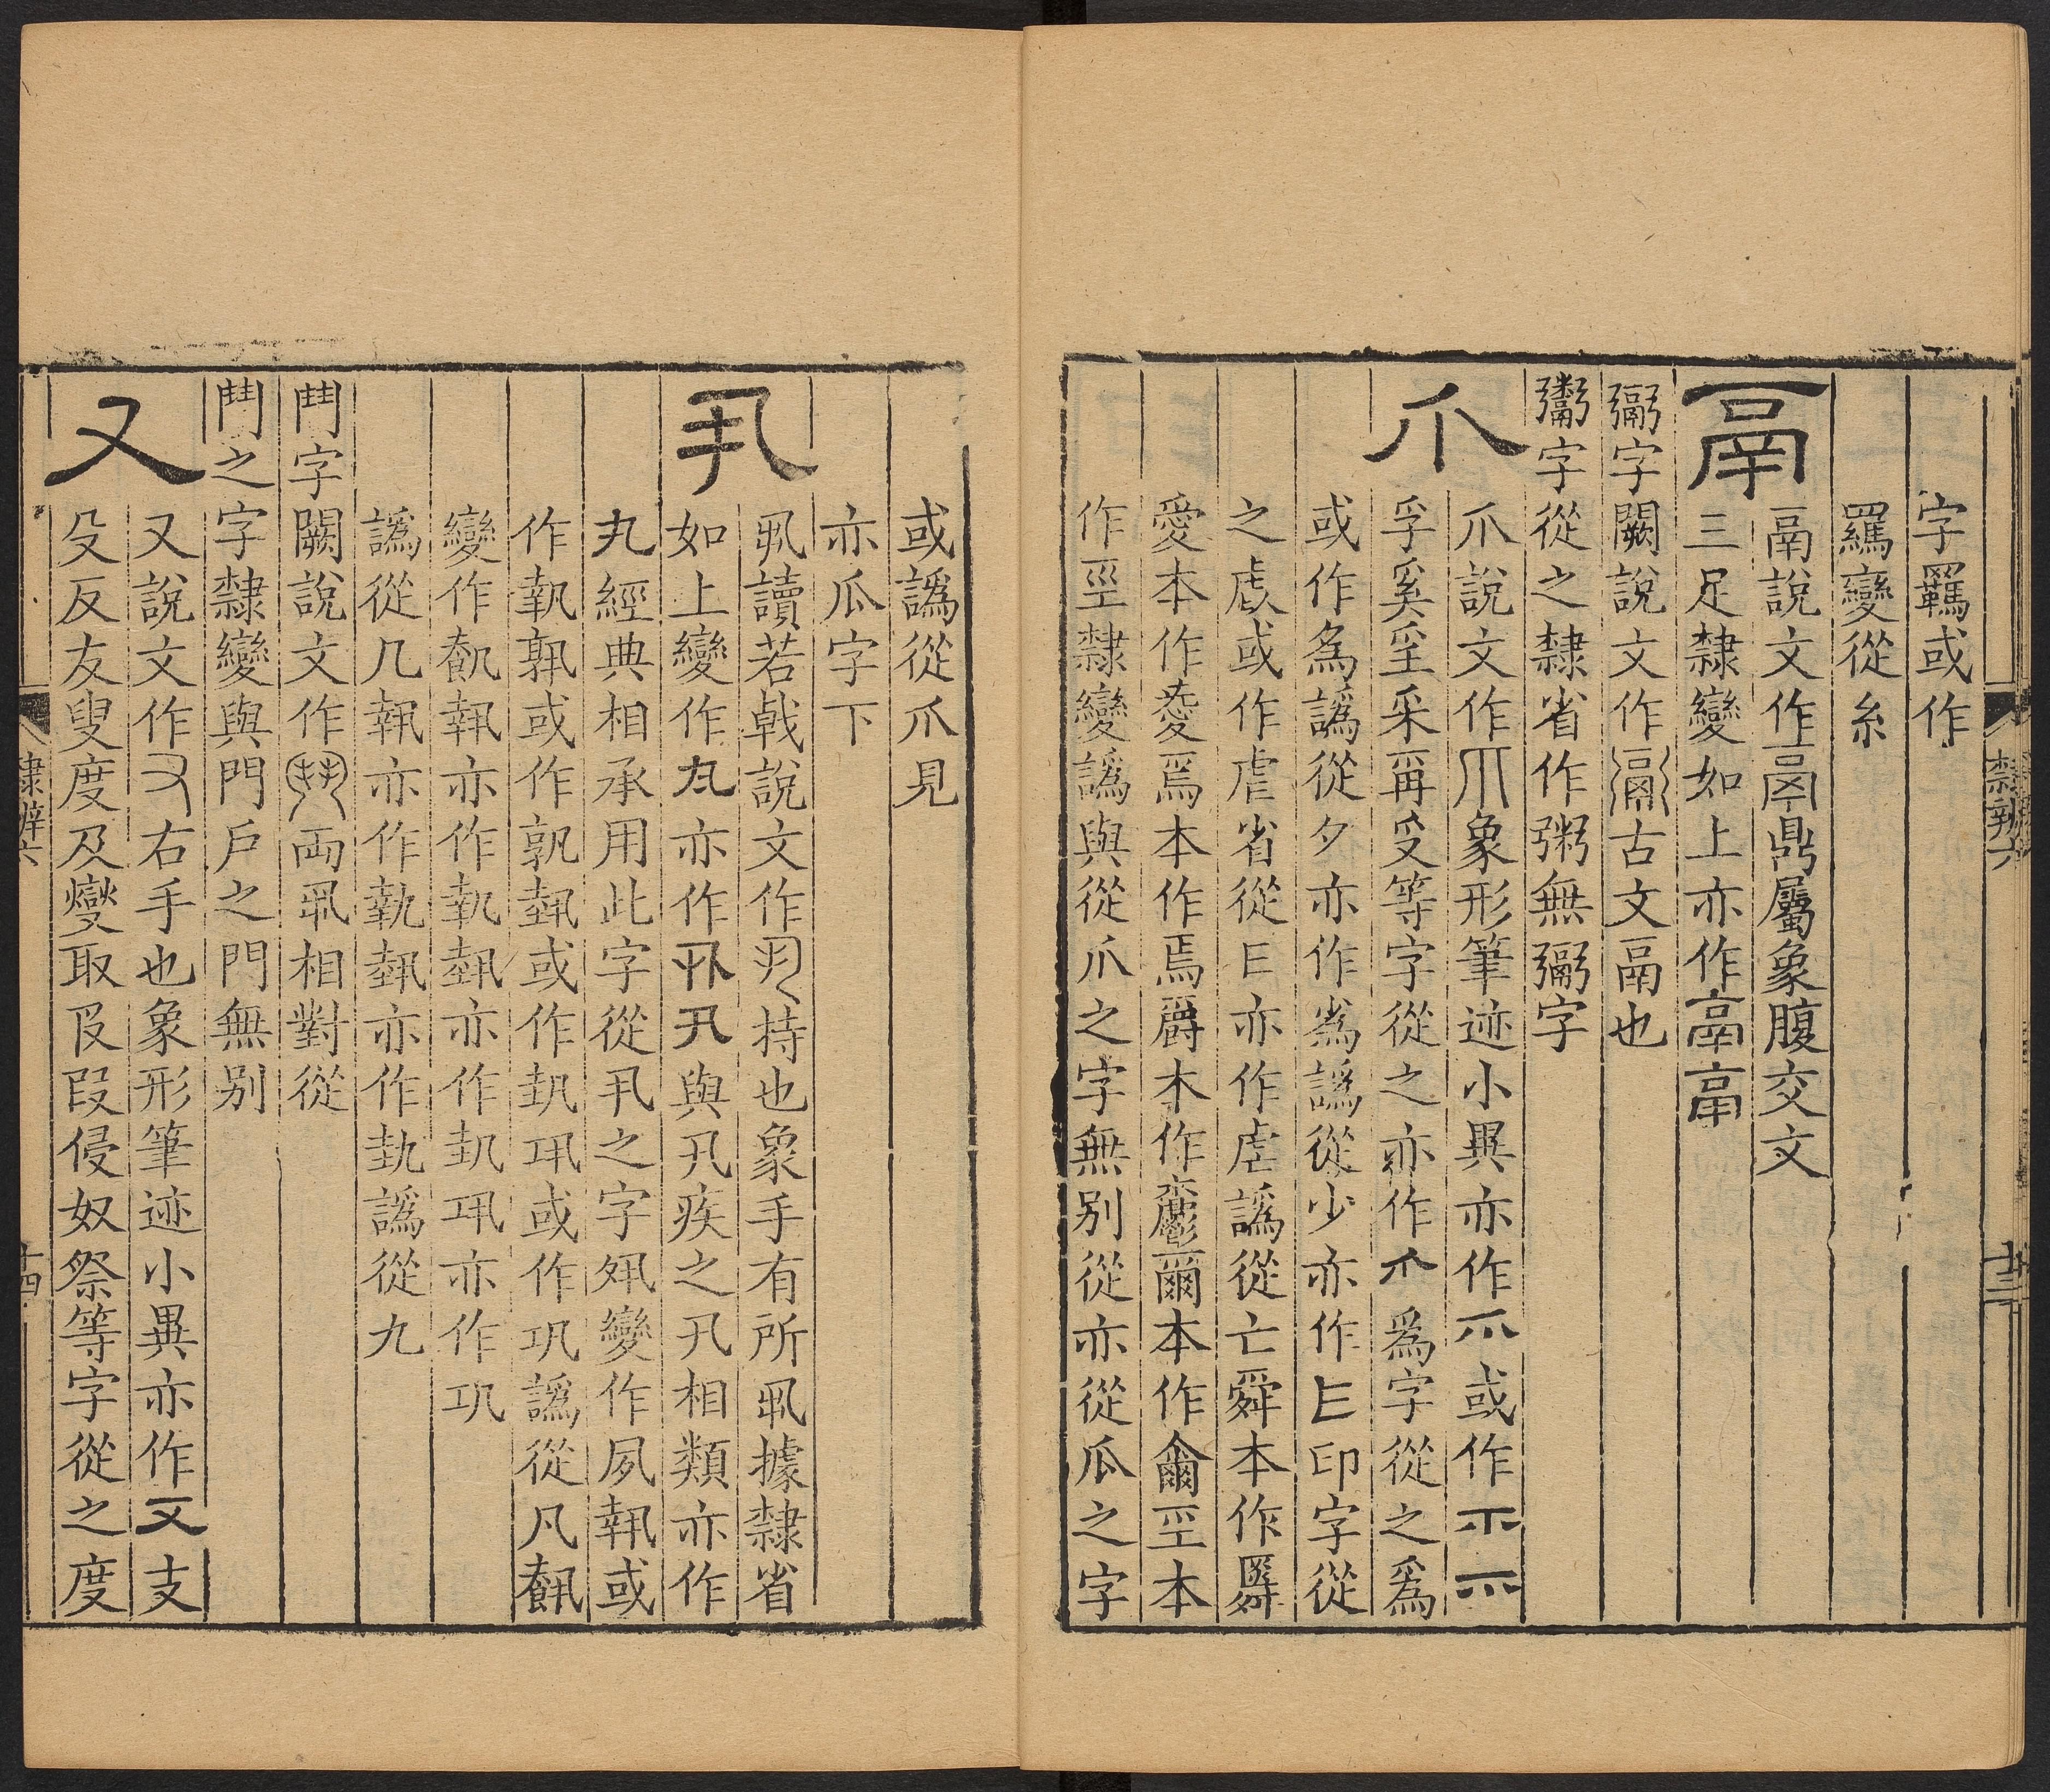 字羈或作
羅變從糸
鬲
鬲說文作鬲鼎屬象腹交文
三足隸變如上亦作
䰜字闕說文作古文鬲也
鬻字從之隸省作粥無䰜字
爪
爪說文作爪象形筆迹小異亦作或作
孚奚坙采爯受等字從之亦作爲字從之爲
或作為譌從夕亦作譌從少亦作印字從
之虐或作虐省從亦作譌從亡舜本作
愛本作焉本作焉爵本作鬱爾本作坙本
作坙隸變譌與從爪之字無别從亦從瓜之字
或譌從爪見
亦瓜字下
丮
丮讀若戟說文作持也象手有所丮據隸省
如上變作亦作與卂疾之卂相類亦作
丸經典相承用此字從丮之字㚨變作夙執或
作執孰或作孰埶或作埶巩或作巩譌從凡
變作執亦作執埶亦作埶巩亦作巩
譌從几執亦作執埶亦作埶譌從九
鬥字闕說文作兩丮相對從
鬥之字隸變與門戶之門無别
又
又說文作右手也象形筆迹小異亦作支
反友叟度及燮取侵奴祭等字從之度
隸辨六
十四